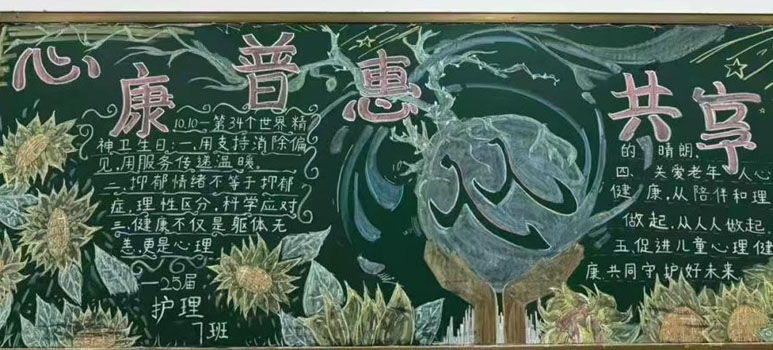 心康普惠 共享
10.10—第34个世界精
神卫生日:一.用支持消除偏
见,用服务传递温暖.
二.抑郁情绪不等于抑郁
症,理性区分,科学应对
三.健康不仅是躯体无
恙,更是心理
—25届
护理
7班
的 晴朗.
四.关爱老年人心
健康,从陪伴和理
做起,从人人做起.
五.促进儿童心理健
康共同守护好未来